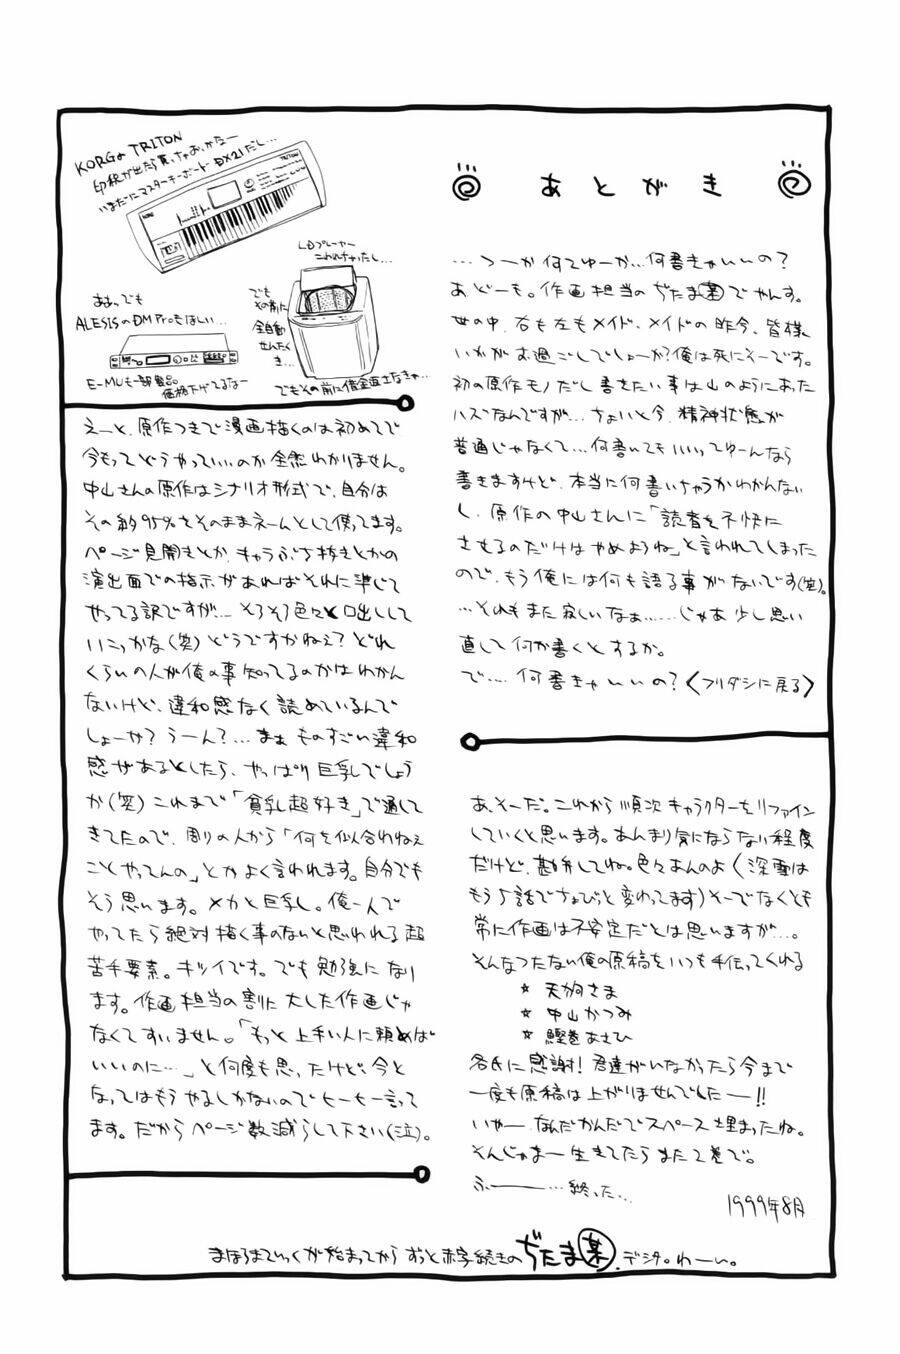 あとがき
…つーか何てゆーか…何書きゃいいの?
あどーも。作画担当のぢたま某でやんす。
世の中、右も左もメイド、メイドの昨今、皆様
いかがお過ごしでしょーか?俺は死にそーです。
初の原作モノだし書きたい事は山のようにあった
ハズなんですが…ちょいと今、精神状態が
普通じゃなくて…何書いてもいいってゆーんなら
書きますけど、本当に何書いちゃうかわかんない
し、原作の中山さんに「読者を不快に
させるのだけはやめようね」と言われてしまった
ので、もう俺には何も語る事がないです(笑)。
…それもまた寂しいなぁ……じゃあ少し思い
直して何か書くとするか。
で…何書きゃいいの?〈フリダシに戻る〉
KORGのTRITON
印税が出たら買っちゃおっかなー
いまだにマスターキーボードDX21だし…
LDプレーヤー
こわれちゃったし…
ああ、でも
ALESISのDM Proもほしい…
E-MUも一部製品
価格下げてるなー
でも
その前に
全自動
せんたく
き…
でもその前に借金返さなきゃ…
えーと、原作つきで漫画描くのは初めてで
今もってどうやっていいのか全然わかりません。
中山さんの原作はシナリオ形式で、自分は
その約95%をそのままネームとして使ってます。
ページ見開きとか、キャラぶち抜きとかの
演出面での指示があればそれに準じて
やってる訳ですが…そろそろ色々と口出しして
いこっかな(笑)どうですかねぇ?どれ
くらいの人が俺の事知ってるのかはわかん
ないけど、違和感なく読めているんで
しょーか?うーん?…まぁものすごい違和
感があるとしたら、やっぱり巨乳でしょう
か(笑)これまで「貧乳超好き」で通して
きてたので、周りの人から「何を似合わねぇ
ことやってんの」とかよく言われます。自分でも
そう思います。メカと巨乳し。俺一人で
やってたら絶対描く事のないと思われる超
苦手要素。キツイです。でも勉強になり
ます。作画担当の割に大した作画じゃ
なくてすいません。「もっと上手い人に頼めば
いいのに…」と何度も思ったけど、今と
なってはもうやるしかないのでヒーヒー言って
ます。だからページ数減らして下さい(泣)。
あ、そーだ。これから順次キャラクターをリファイン
していくと思います。あんまり気にならない程度
だけど、勘弁してね。色々あんのよ(深雪は
もう5話でちょびっと変わってます)そーでなくとも
常に作画は不安定だとは思いますが…。
そんなつたない俺の原稿をいつも手伝ってくれる
☆ 天朔さま
☆ 中山かつみ
☆ 鰹巻あさひ
各氏に感謝!君達がいなかったら今まで
一度も原稿は上がりませんでしたー!!
いやーなんだかんだでスペース埋まったね。
そんじゃまー生きてたらまた2巻で。
ふーー…終った…
1999年8月
まほろまてぃっくが始まってからずっと赤字続きのぢたま某、デジタ。わーい。